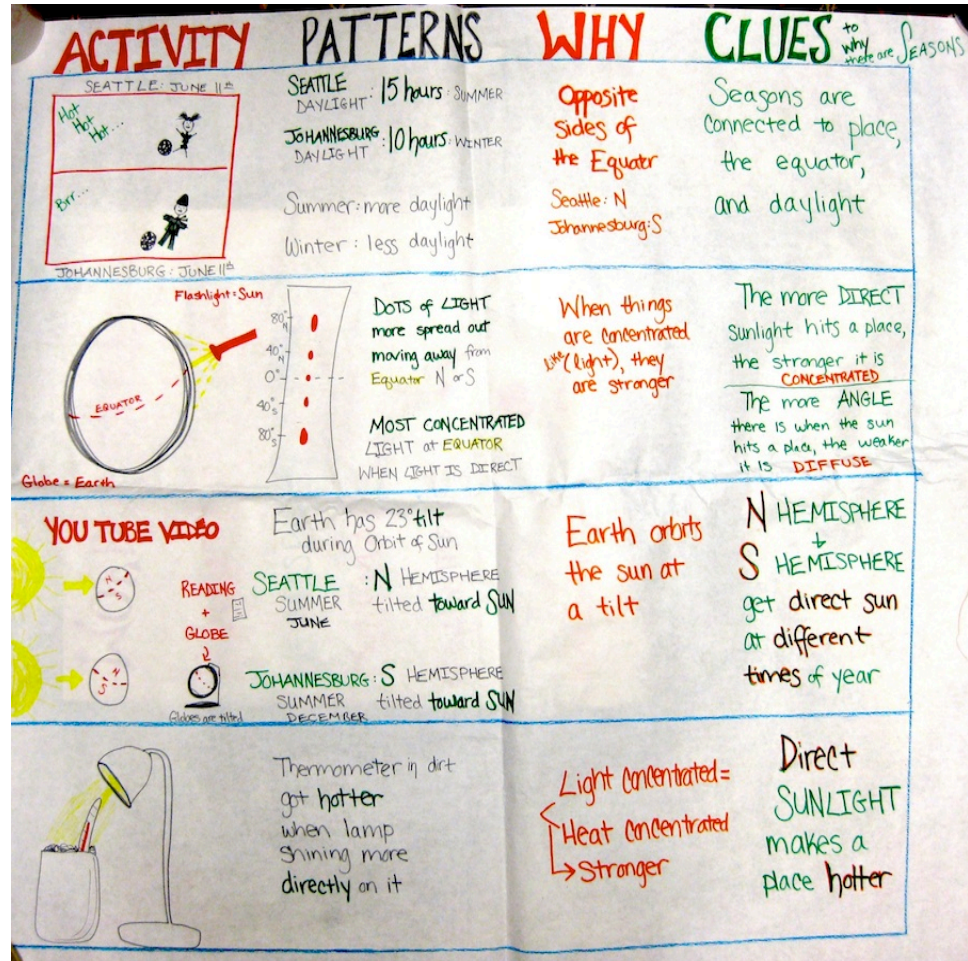 ACTIVITY PATTERNS WHY CLUES to why there are SEASONS
SEATTLE: JUNE 11th
Hot
Hot
Hot...
Brr...
JOHANNESBURG: JUNE 11th
SEATTLE
DAYLIGHT: 15 hours: SUMMER
JOHANNESBURG
DAYLIGHT: 10 hours: WINTER
Summer: more daylight
Winter: less daylight
Opposite
Sides of
the Equater
Seattle: N
Johannesburg: S
Seasons are
connected to place,
the equator,
and daylight
Flashlight = Sun
EQUATOR
Globe = Earth
80° N
40° N
0°
40° S
80° S
DOTS of LIGHT
more spread out
moving away from
Equator N or S
MOST CONCENTRATED
LIGHT at EQUATOR
WHEN LIGHT IS DIRECT
When things
are concentrated
like (light), they
are stronger
The more DIRECT
sunlight hits a place,
the stronger it is
CONCENTRATED
The more ANGLE
there is when the sun
hits a place, the weaker
it is DIFFUSE
YOU TUBE VIDEO
N
S
N
S
READING
+
GLOBE
Globes are tilted
Earth has 23° tilt
during Orbit of Sun
SEATTLE : N HEMISPHERE
SUMMER tilted toward SUN
JUNE
JOHANNESBURG: S HEMISPHERE
SUMMER tilted toward SUN
DECEMBER
Earth orbits
the sun at
a tilt
N HEMISPHERE
S HEMISPHERE
get direct sun
at different
times of year
Thermometer in dirt
got hotter
when lamp
shining more
directly on it
Light concentrated =
Heat concentrated
Stronger
Direct
SUNLIGHT
makes a
place hotter